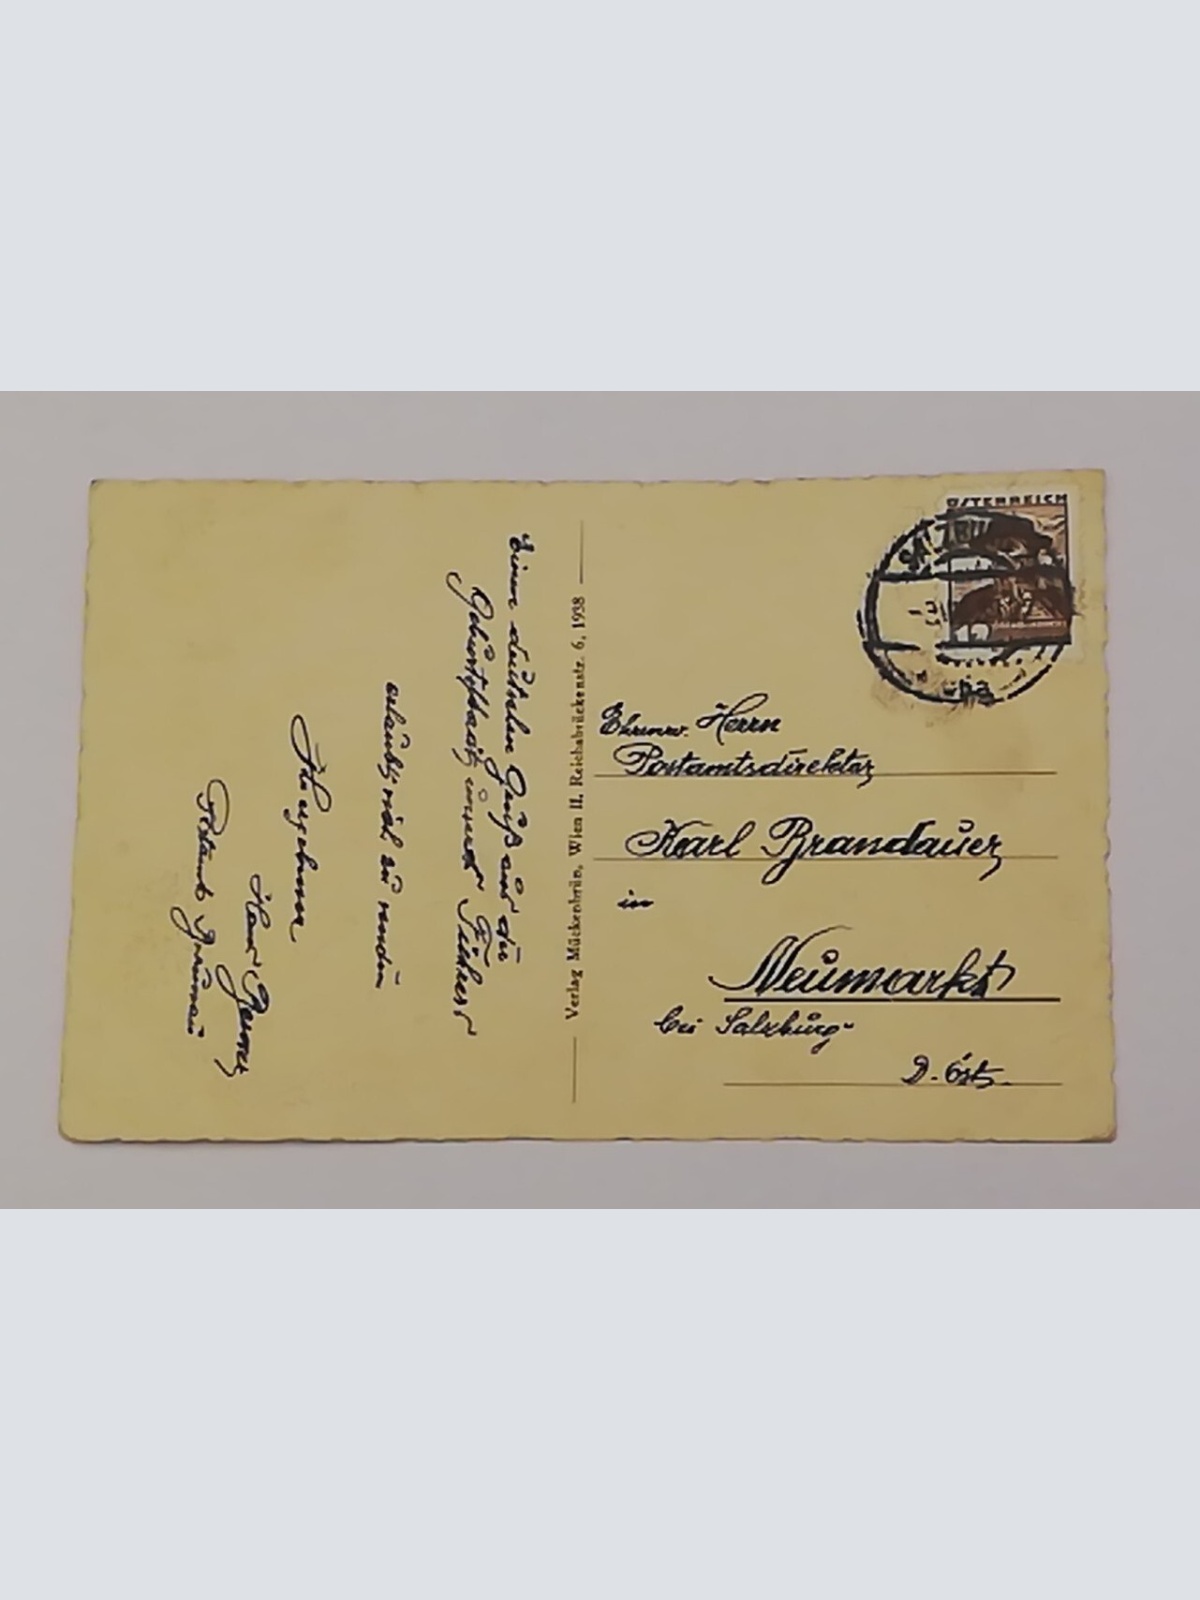 Einen deutschen Gruß aus der
Geburtsstadt unseres Führers
erlaubt sich zu senden
Ihr ergebener
Hans
Postamt Braunau
Verlag Mückenbrün, Wien II, Reichsbrückenstr. 6, 1938
ÖSTERREICH
SALZBURG
Ehrenw. Herrn
Postamtsdirektor
Karl Brandauer
in
Neumarkt
bei Salzburg
D. Öst.